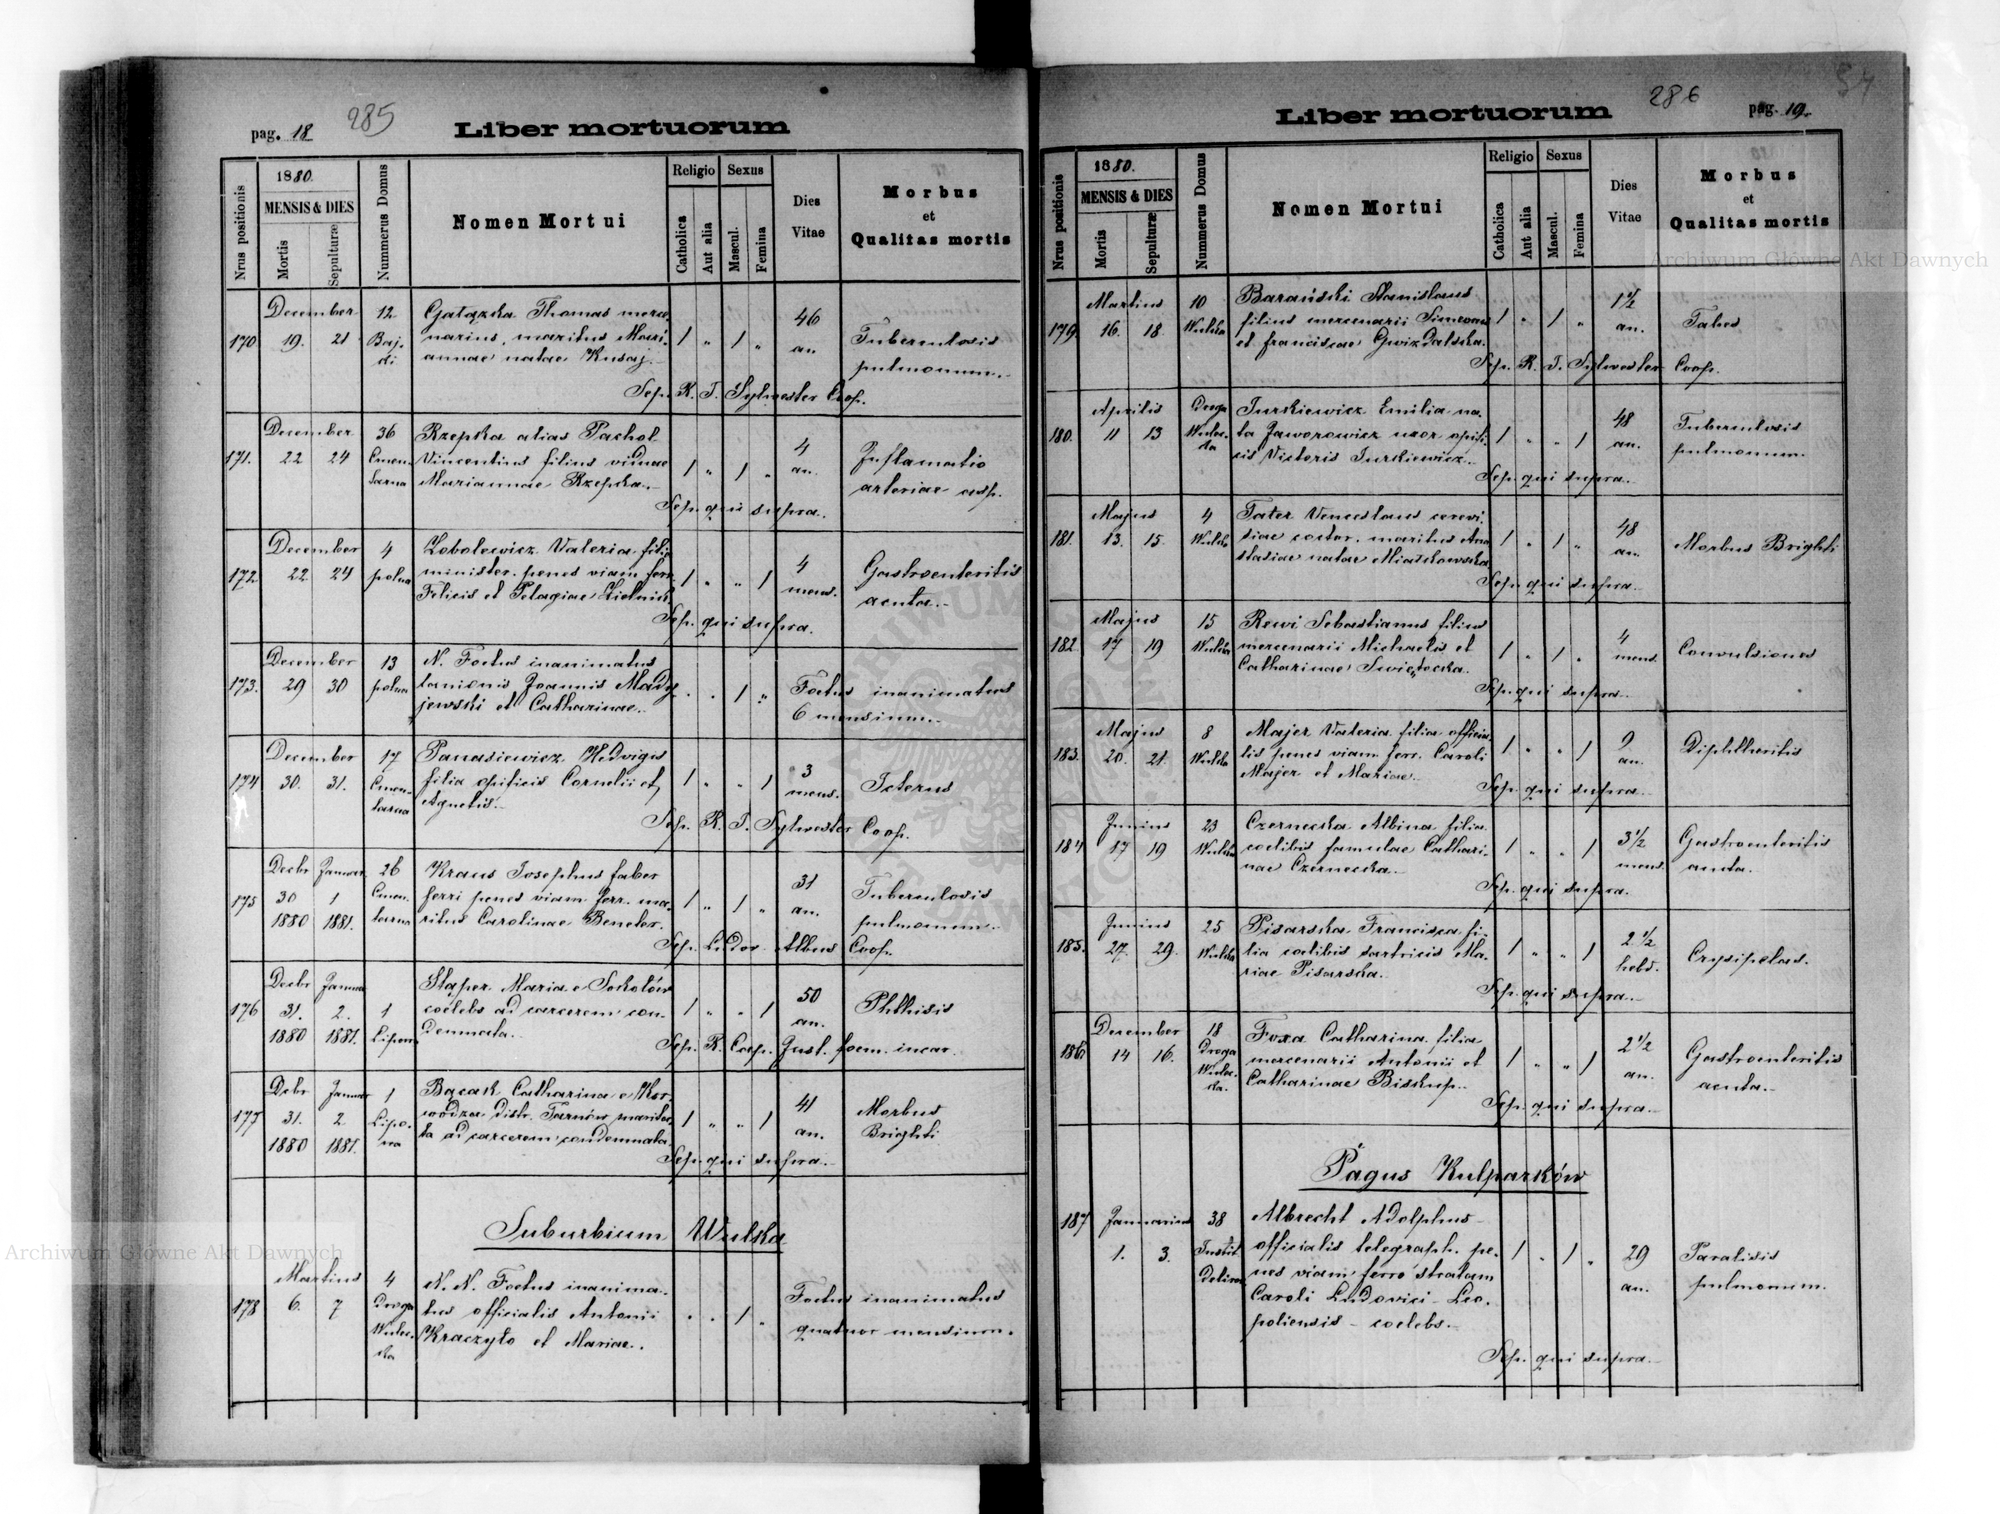 pag. 18
285
Liber mortuorum
Nrus positionis
1880.
MENSIS & DIES
Mortis
Sepulturæ
Nummerus Domus
Nomen Mortui
Religio
Catholica
Aut alia
Sexus
Mascul.
Femina
Dies
Vitae
Morbus
et
Qualitas mortis
December 12 Gałązka Thomas merce 46
170 19. 21 Baj- narius, maritus Mari- 1 " 1 " an Tuberculosis
ki annae natae Kusaj. pulmonum.
Sep. R. T. Sylwester Coop.
December 36 Rzepka alias Pachol 4
171. 22 24 Cmen- Vincentius filius viduae 1 " 1 " an. Inflamatio
tarna Mariannae Rzepka. arteriae asp.
Sep. qui supra.
December 4 Zobolewicz Valeria filia 4
172 22 24 polna minister. penes viam ferr. 1 " " 1 mens. Gastroenteritis
Felicis et Pelagiae acuta.
Sep. qui supra.
December 13 N. Foetus inanimatus
173. 29 30 polna lanionis Joannis Mady . . 1 " Foetus inanimatus
jewski et Catharinae. 6 mensium.
December 17 Panasiewicz Hedvigis 3
174 30. 31. Cmen- filia opificis Cornelii et 1 " " 1 mens. Icterus
tarna Agnetis.
Sep. R. T. Sylwester Coop.
Decbr Januar 26 Kraus Josephus faber 31
175 30 1 Cmen- ferri penes viam ferr. ma- 1 " 1 " an. Tuberculosis
1880 1881. tarna ritus Carolinae Bencler. pulmonum.
Sep. Ludov. Albus Coop.
Decbr Janua Staper Maria e Sokolów 50
176 31. 2. 1 coelebs ad carcerem con- 1 " " 1 an. Phthisis
1880 1881. Lipow demnata.
Sep. R. Coop. Gust. foem. incar.
Debr Januar 1 Bącak Catharina e 41
177 31. 2 Lipo- wodza distr. Tarnów marita- 1 " " 1 an. Morbus
1880 1881. wa ta ad carcerem condemnata. Brighti
Sep. qui supra.
Suburbium Wulka
Martius 4 N. N. Foetus inanima-
178 6. 7 Droga tus officialis Antonii . . 1 " Foetus inanimatus
Wulec- Kraczyło et Mariae. quatuor mensium.
ka
286
pag. 19.
Liber mortuorum
Nrus positionis
1880.
MENSIS & DIES
Mortis
Sepulturæ
Nummerus Domus
Nomen Mortui
Religio
Catholica
Aut alia
Sexus
Mascul.
Femina
Dies
Vitae
Morbus
et
Qualitas mortis
Martius 10 Barański Stanislaus 1 1/2
179. 16. 18. Wulka filius mercenarii Simeonis 1 " 1 " an. Tabes
et Franciscae Gwizdalska.
Sep. R. T. Sylwester Coop.
Aprilis Droga Turkiewicz Emilia na- 48
180. 11 13 Wulec- ta Jaworowicz uxor opifi- 1 " " 1 an. Tuberculosis
ka cis Victoris Turkiewicz. pulmonum.
Sep. qui supra.
Majus 4 Tater Venceslaus cerevi- 48
181. 13. 15. Wulka siae coctor, maritus Ana 1 " 1 " an. Morbus Brighti
stasiae natae Miatkowska
Sep. qui supra.
Majus 15 Rewi Sebastianus filius 4
182. 17 19 Wulka mercenarii Michaelis et 1 " 1 " mens. Convulsiones
Catharinae Swiętocka.
Sep. qui supra.
Majus 8 Majer Valeria filia officia 9
183. 20. 21. Wulka lis penes viam ferr. Caroli 1 " " 1 an. Diphtheritis
Majer et Mariae.
Sep. qui supra.
Junius 23 Czernecka Albina filia 3 1/2
184 17 19 Wulka coelibis famulae Cathari- 1 " " 1 mens. Gastroenteritis
nae Czernecka. acuta.
Sep. qui supra.
Junius 25 Pisarska Francisca fi- 2 1/2
185. 27. 29. Wulka lia coelibis sartricis Ma- 1 " " 1 hebd. Erysipelas.
riae Pisarska.
Sep. qui supra.
December 18 Foxa Catharina filia 2 1/2
186 14 16. Droga mercenarii Antonii et 1 " " 1 an. Gastroenteritis
Wulec- Catharinae Biskup. acuta.
ka.
Sep. qui supra.
Pagus Kulparków
187 Januarius 38 Albrecht Adolphus
1. 3. Instit. officialis telegraph. pe- 1 " 1 " 29 Paralisis
Deliror. nes viam ferro stratam an. pulmonum.
Caroli Ludovici Leo-
poliensis coelebs.
Sep. qui supra.
Archiwum Główne Akt Dawnych
Archiwum Główne Akt Dawnych